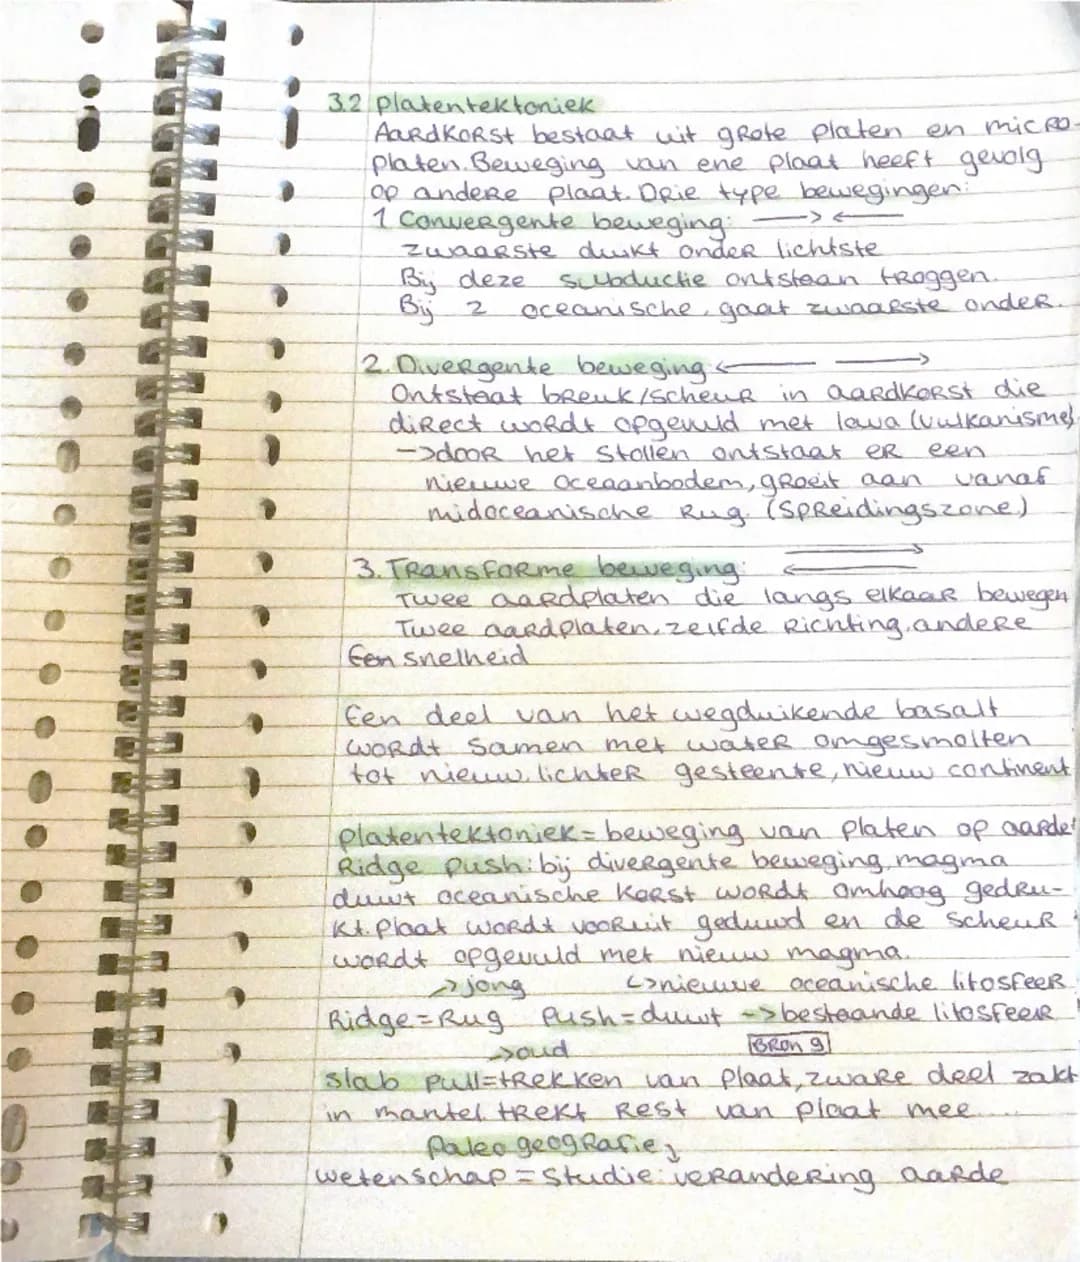 3.2 platentektoniek
Aardkorst bestaat uit grote platen en micro-
platen. Beweging van ene plaat heeft gevolg
op andere plaat. Drie type bewegingen:
1 Convergente beweging: —> <—
zwaarste duikt onder lichtste
Bij deze subductie ontstaan troggen.
Bij 2 oceanische, gaat zwaarste onder.
2. Divergente beweging <— —>
Ontstaat breuk/scheur in aardkorst die
direct wordt opgevuld met lava (vulkanisme)
->door het stollen ontstaat er een
nieuwe oceaanbodem, groeit aan vanaf
midoceanische rug. (Spreidingszone)
3. Transforme beweging:
Twee aardplaten die langs elkaar bewegen
Twee aardplaten, zelfde richting, andere
Een snelheid
Een deel van het wegduikende basalt
wordt samen met water omgesmolten
tot nieuw, lichter gesteente, nieuw continent
platentektoniek = beweging van platen op aarde
Ridge push: bij divergente beweging, magma
duwt oceanische korst wordt omhoog gedru-
kt. plaat wordt vooruit geduwd en de scheur
wordt opgevuld met nieuw magma.
->jong ↳nieuwe oceanische litosfeer
Ridge = Rug Push = duwt -> bestaande litosfeer
->oud Bron 9
slab pull = trekken van plaat, zware deel zakt
in mantel trekt rest van plaat mee....
paleogeografie
wetenschap = studie: verandering aarde